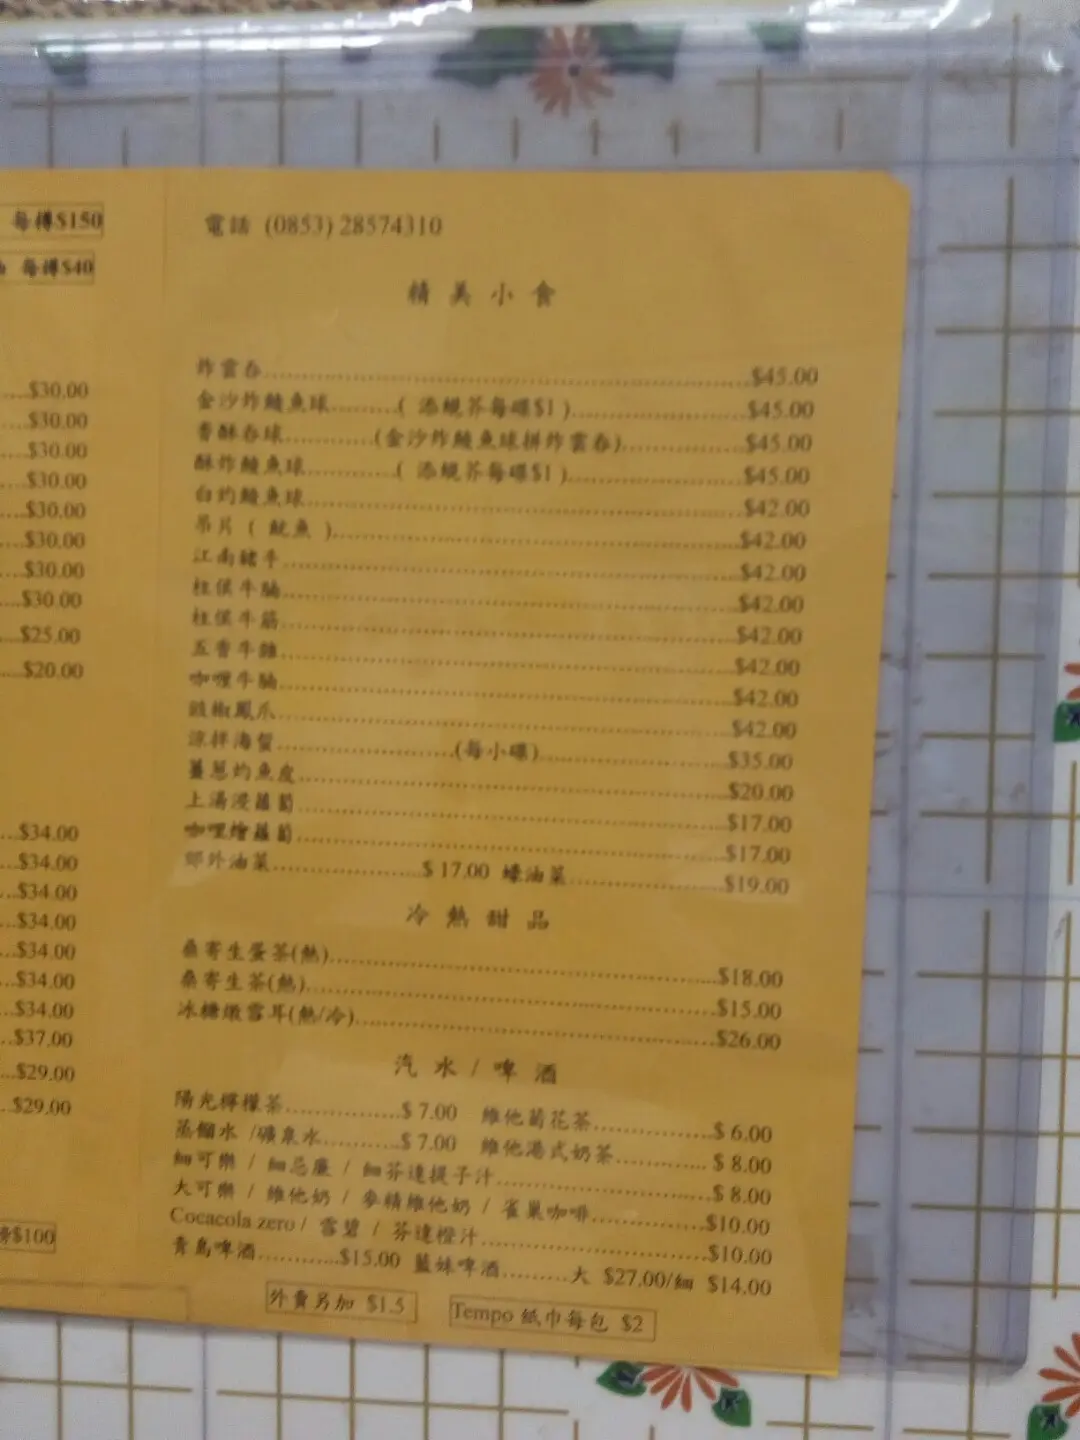 每樽$150
每樽$40
$30.00
$30.00
$30.00
$30.00
$30.00
$30.00
$30.00
$30.00
$25.00
$20.00
$34.00
$34.00
$34.00
$34.00
$34.00
$34.00
$34.00
$37.00
$29.00
$29.00
$100
電話 (0853) 28574310
精美小食
炸雲吞 $45.00
金沙炸鯪魚球 ( 添蜆芥每碟$1 ) $45.00
香酥吞球 (金沙炸鯪魚球拼炸雲吞) $45.00
酥炸鯪魚球 ( 添蜆芥每碟$1 ) $45.00
白灼鯪魚球 $42.00
吊片 ( 魷魚 ) $42.00
江南 $42.00
柱侯牛腩 $42.00
柱侯牛筋 $42.00
五香牛雜 $42.00
咖喱牛腩 $42.00
豉椒鳳爪 $42.00
涼拌海蜇 (每小碟) $35.00
薑蔥灼魚皮 $20.00
上湯浸蘿蔔 $17.00
咖喱燴蘿蔔 $17.00
郊外油菜 $ 17.00 蠔油菜 $19.00
冷熱甜品
桑寄生蛋茶(熱) $18.00
桑寄生茶(熱) $15.00
冰糖燉雪耳(熱/冷) $26.00
汽水 / 啤酒
陽光檸檬茶 $ 7.00 維他菊花茶 $ 6.00
蒸餾水 /礦泉水 $ 7.00 維他港式奶茶 $ 8.00
細可樂 / 細忌廉 / 細芬達提子汁 $ 8.00
大可樂 / 維他奶 / 麥精維他奶 / 雀巢咖啡 $10.00
Cocacola zero / 雪碧 / 芬達橙汁 $10.00
青島啤酒 $15.00 藍妹啤酒 大 $27.00/細 $14.00
外賣另加 $1.5
Tempo 紙巾每包 $2